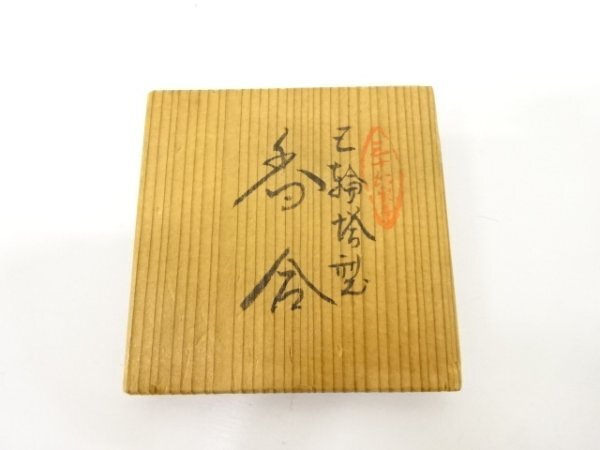 五輪塔型
香合